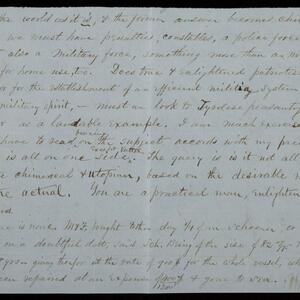 the world as it is, & the former answer becomes
we must have penalties, constables, a police force
also a military force, something more than an
for home use, too. Does true & enlightened patriotis
for the establishment of an efficient militia System
military spirit, — must we look to Tyrolese peasantry
or as a laudable example. I am much
have to read on the subject accords with my pre
is all on one side. The query is is it not all
the chimerical & utopian, based on the desirable
the actual. You are a practical man, Enlighten

is none. Mr F. bought other day 1/4 of in Schooner,
on a doubtful debt, said Sch. being of the size of 82
given therefor at the rate of 700$ for the whole vessel,
been repaired at an expense & gone to sea.